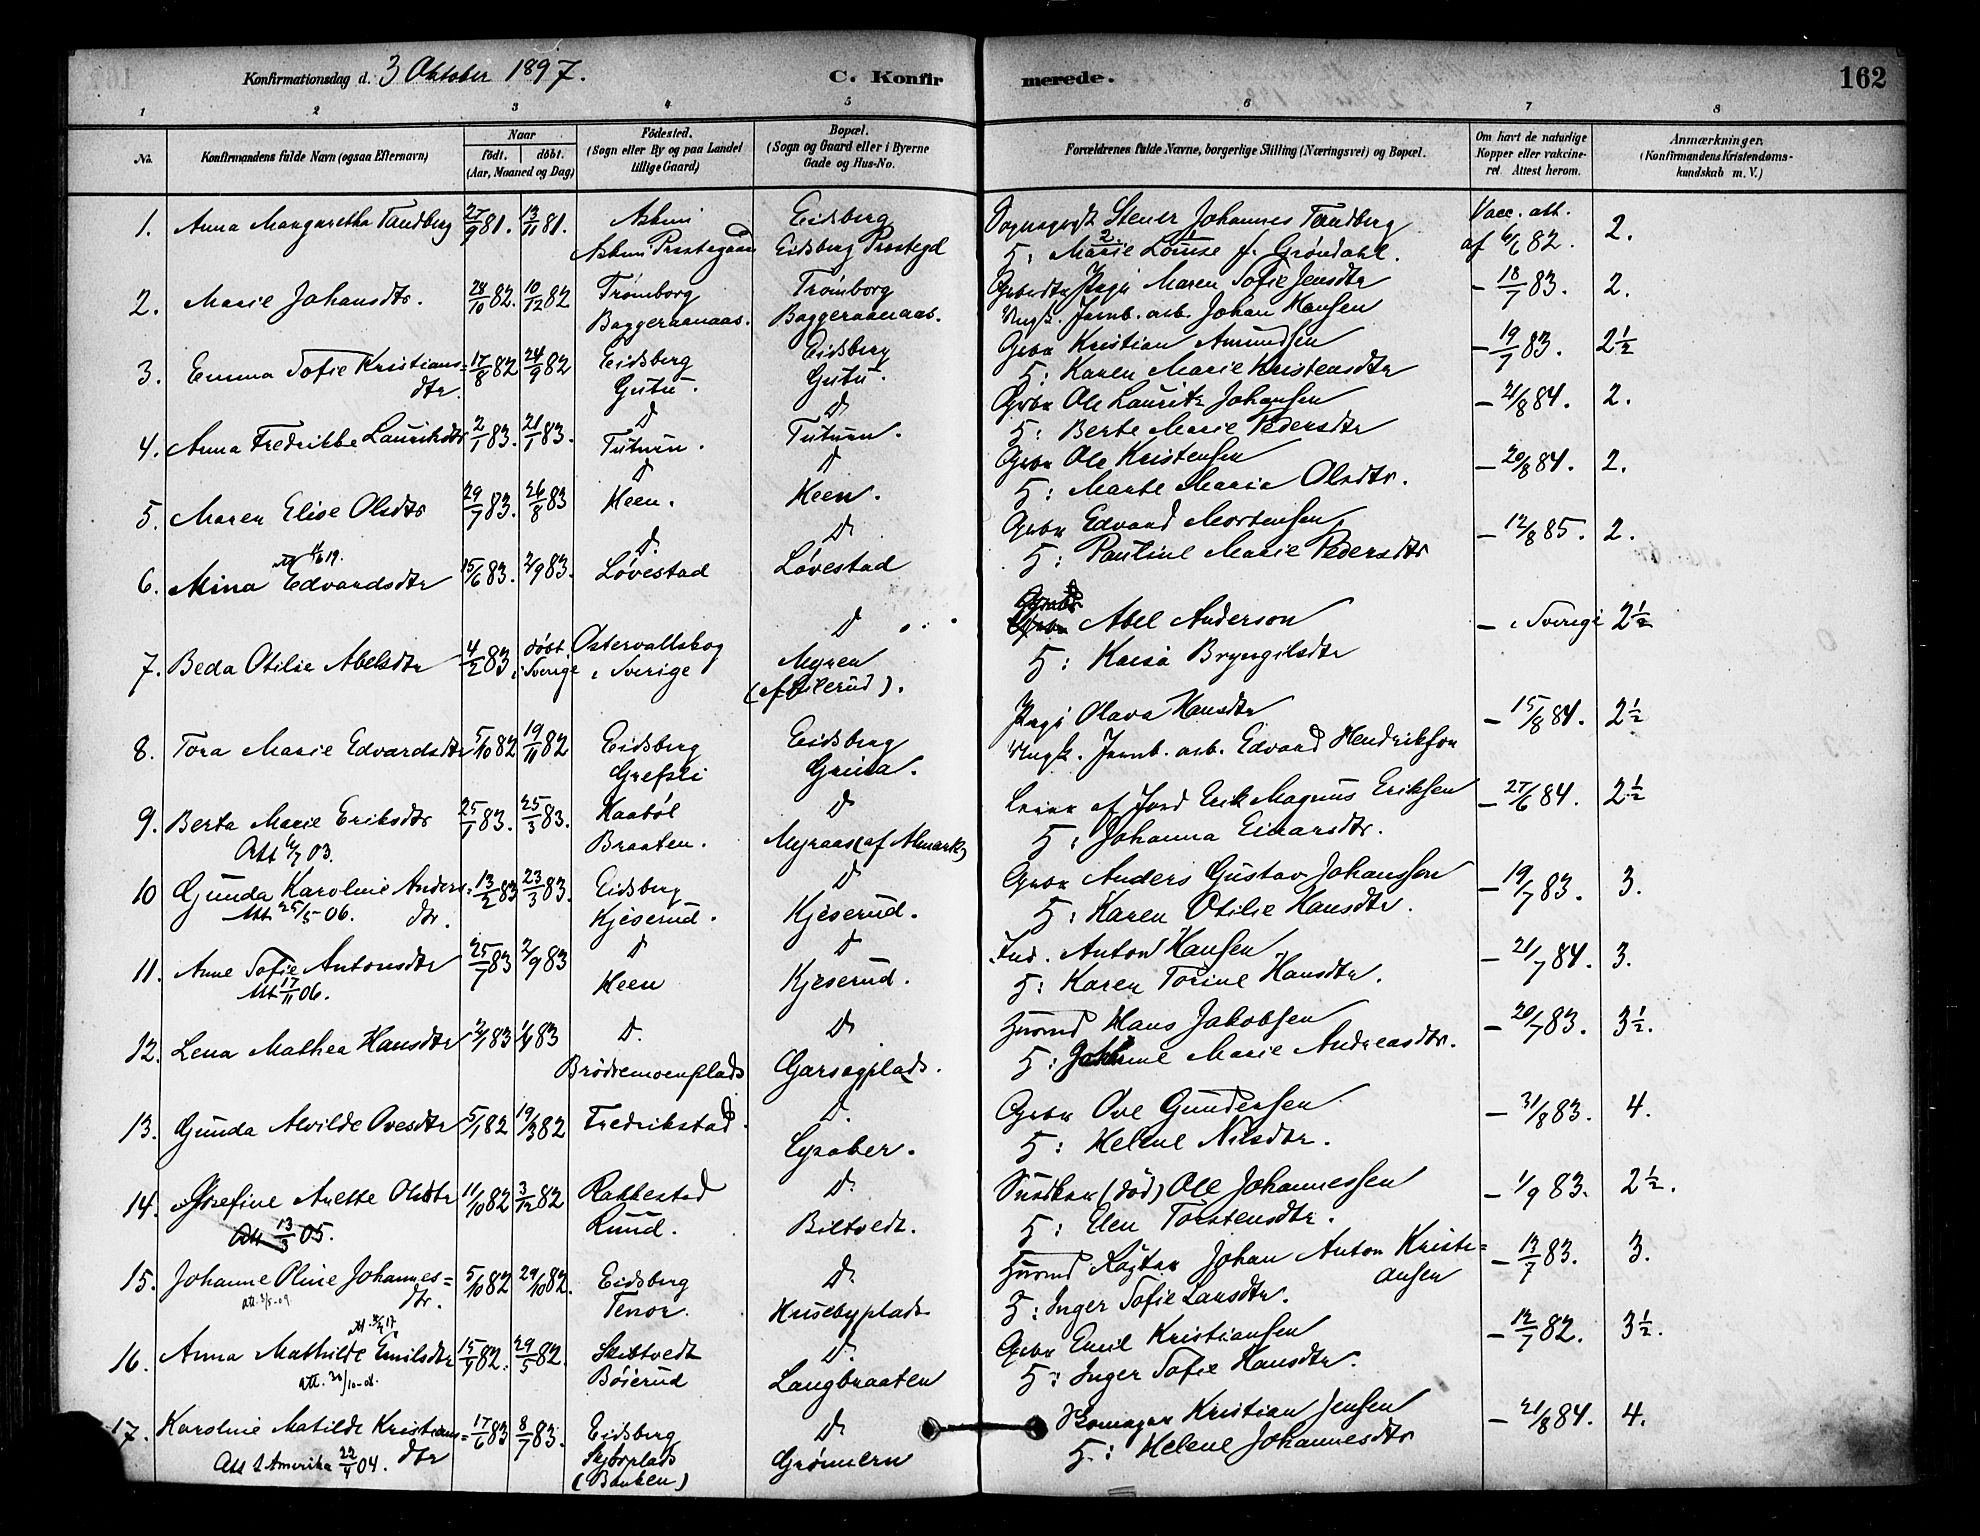 Konfirmationsdag d. 3 Oktober 1897. C. Konfirmerede. 162
1 2 3 4 5 6 7 8
No. Konfirmandens fulde Navn (ogsaa Efternavn) Naar födt. döbt. (Aar, Maaned og Dag) Födested. (Sogn eller By og paa Landet tillige Gaard) Bopæl. (Sogn og Gaard eller i Byerne Gade og Hus-No. Forældrenes fulde Navne, borgerlige Stilling (Næringsvei) og Bopæl. Om havt de naturlige Kopper eller vaccineret Attest herom. Anmærkninger. (Konfirmandens Kristendomskundskab m. V.)
1. Anna Margaretha Tandberg 27/9 81. 13/11 81. Askim Eidsberg Sogneprest Stener Johannes Tandberg Vacc. att. 2.
Askim Prestegaard Eidsberg Prestegd H: Marie Louise f. Grøndahl. af 6/6 82.
2. Marie Johansdtr. 28/10 82. 10/12 82 Trømborg Trømborg Pige Maren Sofie Jensdtr – 18/7 83. 2.
Baggeraanaas. Baggeraanaas. Ungk. Jernb. arb. Johan Hansen
3. Emma Sofie Kristians= 17/8 82 24/9 82 Eidsberg Eidsberg Grbr Kristian Amundsen – 19/7 83. 2½
dtr. Gutu. Gutu. H: Karen Marie Kristensdtr
4. Anna Fredrikke Lauritsdtr 2/1 83. 21/1 83. D D Grbr Ole Lauritz Johansen – 21/8 84. 2.
Tuturn. Tuturn. H: Berte Marie Pedersdtr
5. Maren Elise Olsdtr 29/7 83. 26/8 83 D D Grbr Ole Kristensen – 20/8 84. 2.
Heen. Heen. H: Marte Maria Olsdtr.
6. Mina Edvardsdtr 15/6 83. 2/9 83. D. D Grbr Edvard Mortensen – 12/8 85. 2.
Løvestad Løvestad H: Pauline Marie Pedersdtr
7. Beda Otilie Abelsdtr 4/2 83. döbt i Sverige Ostervallskog D Abel Anderson – i Sverige 2½
i Sverige Myren H: Kaisa Bryngilsdtr
8. Tora Marie Edvardsdtr 5/10 82 19/11 82 Eidsberg Eidsberg Pige Olava Hansdtr – 15/8 84. 2½
Grefsli Ungk. Jernb. arb. Edvard Hendriksen
9. Berta Marie Eriksdtr 25/1 83. 25/3 83. Haabøl D Leier af Jord Erik Magnus Eriksen – 27/6 84. 2½
Att 4/7 03. Braaten. Myraas (af Almark) H: Johanna Einarsdtr.
10 Gunda Karoline Anders= 13/2 83 23/3 83. Eidsberg D Grbr Anders Gustav Johansen – 19/7 83. 3.
Att 25/5-06. dtr. Kjeserud. Kjeserud. H: Karen Otilie Hansdtr.
11. Anne Sofie Antonsdtr 25/7 83 2/9 83 D D Ind. Anton Hansen – 21/7 84. 3.
Att 17/11 06. Heen Kjeserud. H: Karen Torine Hansdtr.
12. Lena Mathea Hansdtr 83 83 D. D Husmd Hans Jakobsen – 20/7 83. 3½.
Brødremoenplads Garsegplads. H: Marie Andreasdtr.
13. Gunda Alvilde Ovesdtr 5/1 82 19/3 82 Fredrikstad. D. Grbr Ove Gundersen – 31/8 83. 4.
H: Helene Nilsdtr.
14. Josefine Anette Olsdtr 11/10 82 3/12 82 Rakkestad D. Snedker (död) Ole Johannessen – 1/9 83. 2½.
Att 13/3 05. Ruud. Biltvedt. H: Elen Torstensdtr.
15. Johanne Oline Johannes= 5/10 82 29/10 82. Eidsberg D. Husmd Røgter Johan Anton Kristi= – 13/7 83. 3.
Att. 3/5-09 dtr. Tenor. Husebyplads H: Inger Sofie Larsdtr. ansen
16. Anna Mathilde Emilsdtr 82. 29/5 82. Skiptvedt D. Grbr Emil Kristiansen – 12/7 82. 3½.
Att. 30/10-08. Böierud Langbraaten H: Inger Sofie Hansdtr.
17. Karoline Matilde Kristians= 17/6 83 8/7 83. Eidsberg D Skomager Kristian Jensen – 21/8 84. 4.
Att t Amerika 22/4 04. dtr (Banken) Grønnern H: Helene Johannesdtr